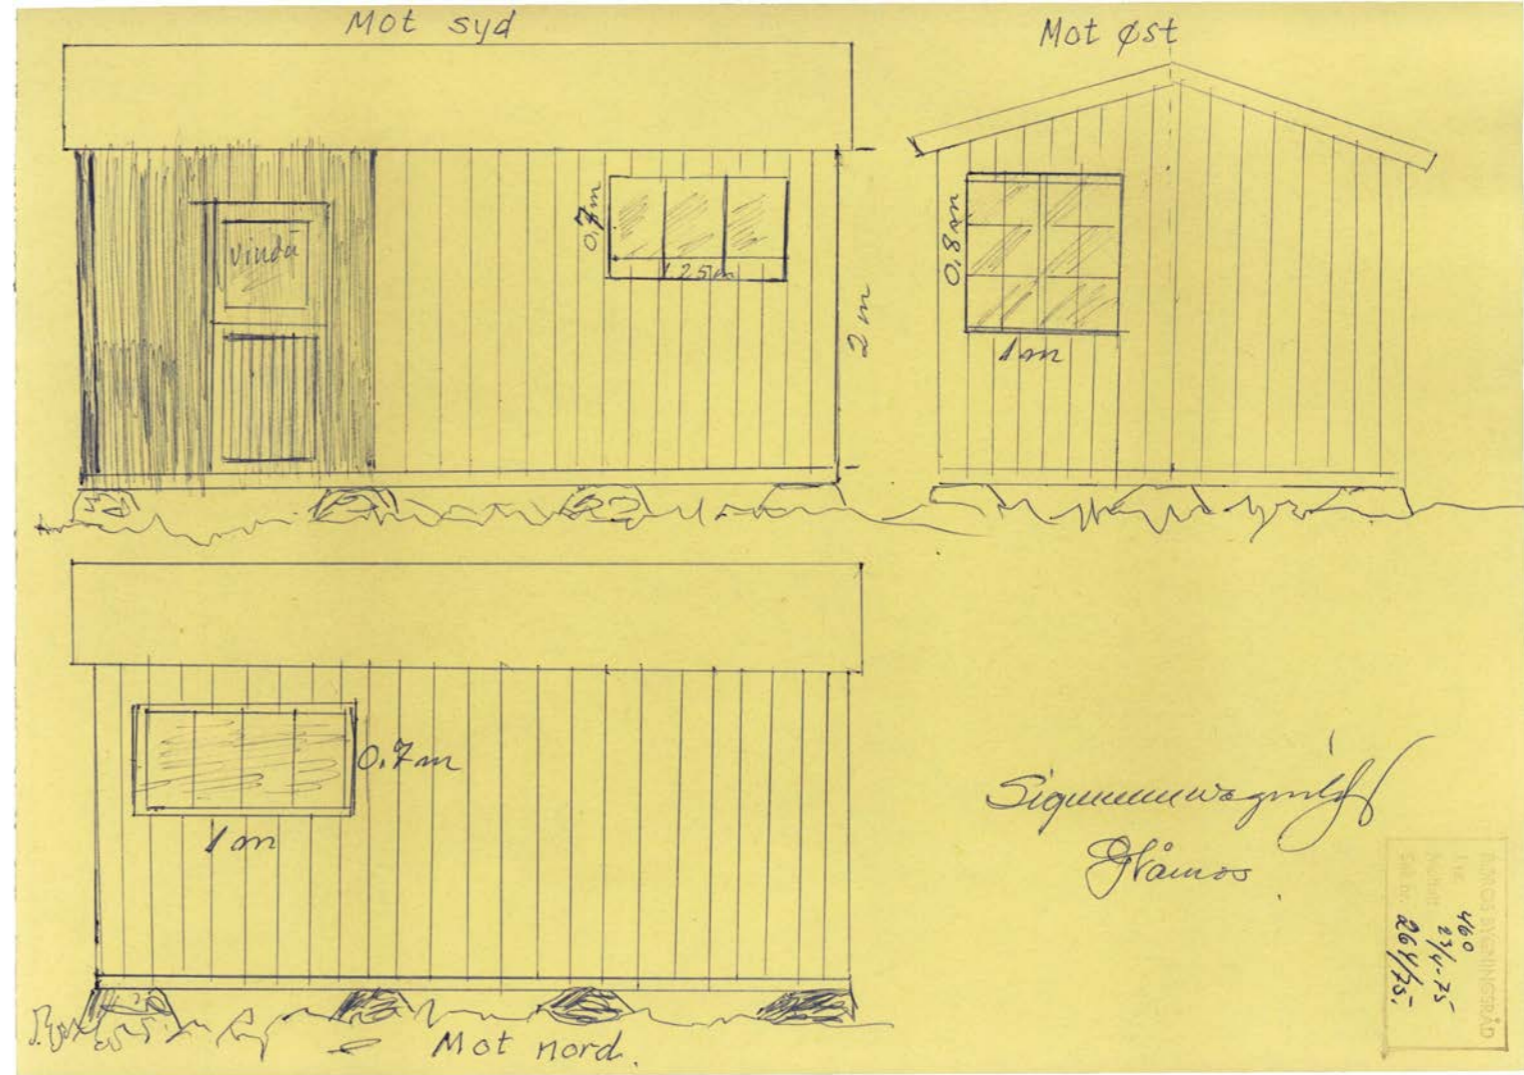 Mot syd
Mot øst
vindu
0,7m
1.25m
2 m
0,8 m
1m
0.7m
1m
Mot nord.
Glåmos
BYGNINGSRÅD
460
23/4-75
264/75.